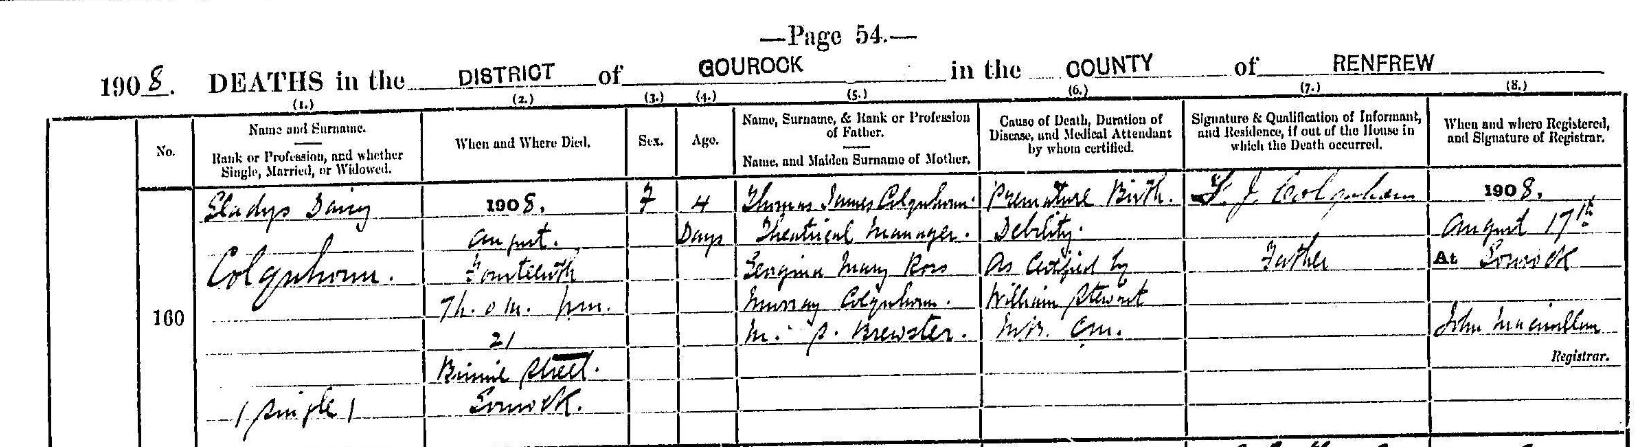 —Page 54.—
1908. DEATHS in the DISTRICT of GOUROCK in the COUNTY of RENFREW
(1.) (2.) (3.) (4.) (5.) (6.) (7.) (8.)
No.
Name and Surname.
Rank or Profession, and whether
Single, Married, or Widowed.
When and Where Died.
Sex.
Age.
Name, Surname, & Rank or Profession
of Father.
Name, and Maiden Surname of Mother.
Cause of Death, Duration of
Disease, and Medical Attendant
by whom certified.
Signature & Qualification of Informant,
and Residence, if out of the House in
which the Death occurred.
When and where Registered,
and Signature of Registrar.
160
Gladys Daisy
Colquhoun.
(Single)
1908.
August.
Fourteenth
7h. 0m. pm.
21
Binnie Street.
Gourock.
F
4
Days
Thomas James Colquhoun.
Theatrical Manager.
Georgina Mary Ross
Murray Colquhoun.
m. s. Brewster.
Premature Birth.
Debility.
As Certified by
William Stewart
M.B. C.M.
T. J. Colquhoun
Father
1908.
August 17th
At Gourock
John Macmillan
Registrar.